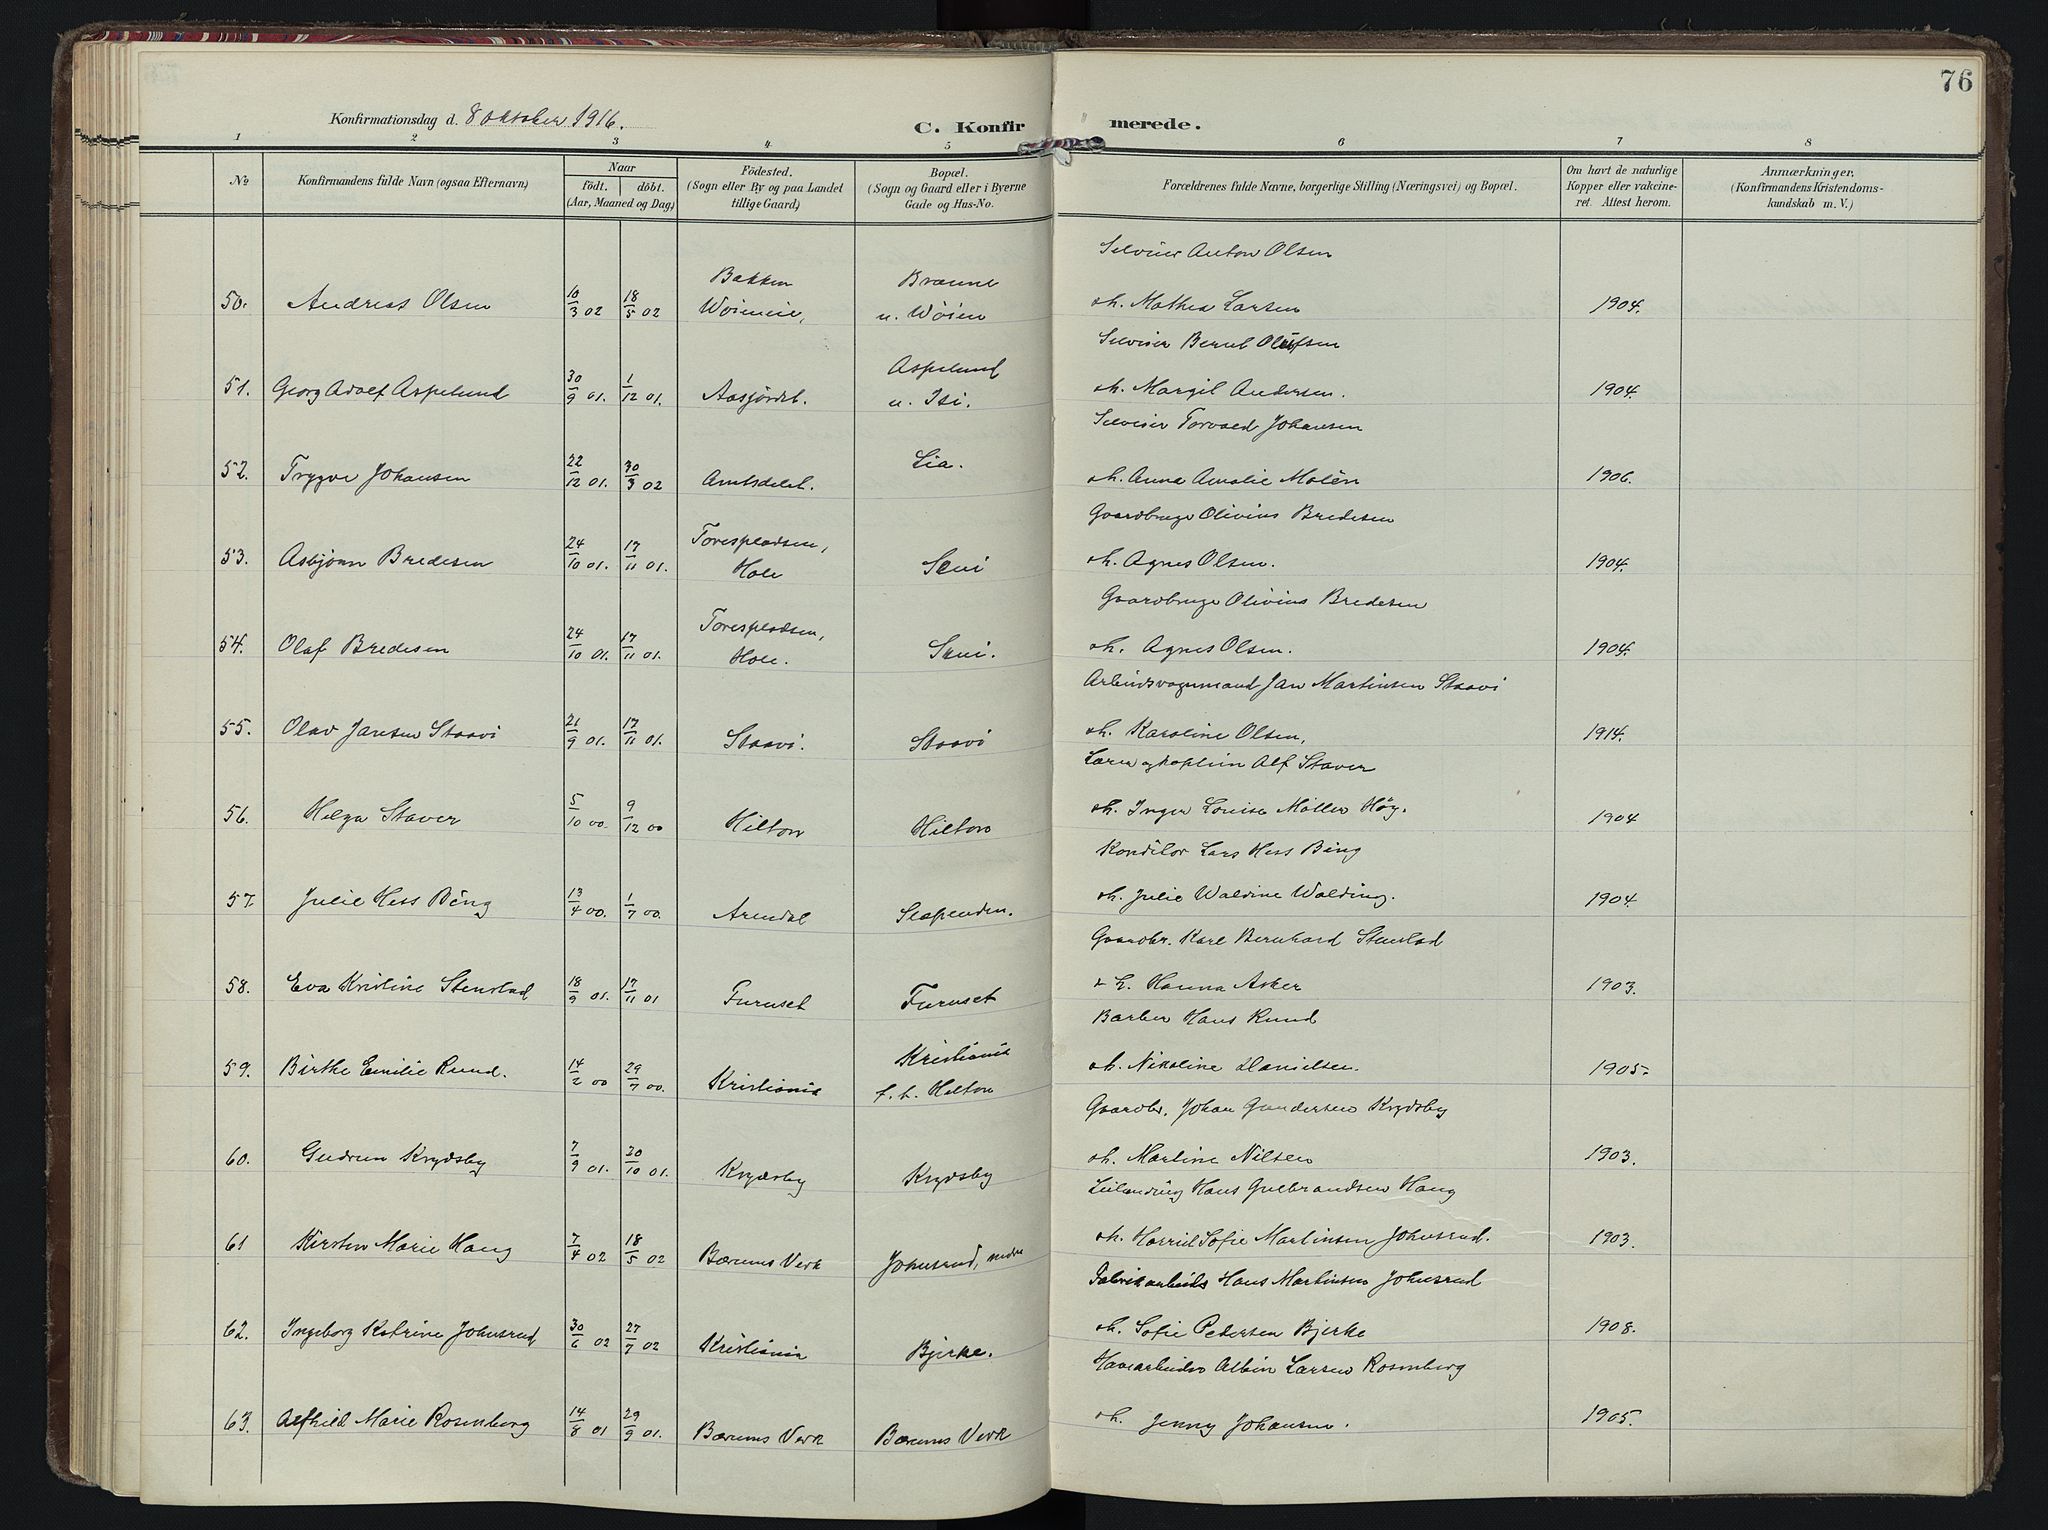 76
Konfirmationsdag d. 8 Oktober 1916.
C. Konfirmerede.
1 2 3 4 5 6 7 8
No
Konfirmandens fulde Navn (ogsaa Efternavn)
Naar
födt. döbt.
(Aar, Maaned og Dag)
Födested.
(Sogn eller By og paa Landet
tillige Gaard)
Bopæl.
(Sogn og Gaard eller i Byerne
Gade og Hus-No.
Forældrenes fulde Navne, borgerlige Stilling (Næringsvei) og Bopæl.
Om havt de naturlige
Kopper eller vakcine-
ret. Attest herom.
Anmærkninger.
(Konfirmandens Kristendoms-
kundskab m. V.)
Anton Olsen
Bakken Bræune
50. Andreas Olsen 10/3 02 18/5 02 u. Wöien oh. Mathea Larsen 1904.
Bernt Olufsen
Aspelund
51. Georg Adolf Aspelund 30/9 01. 1/12 01. u. Isi. oh. Margit Andersen. 1904.
Torvald Johansen
Lia.
52. Trygve Johansen 22/12 01. 30/3 02 Amtsdelet. oh. Anna Amalie Molén 1906.
Gaardbruge Olivius Bredesen
Toresplodsen,
53. Asbjörn Bredesen 24/10 01. 17/11 01. Hole Skui oh. Agnes Olsen. 1904.
Gaardbruge Olivius Bredesen
Toresplodsen,
54. Olaf Bredesen 24/10 01. 17/11 01. Hole. Skui. oh. Agnes Olsen. 1904.
Arbeidsvognmand Jan Martinsen Staavi
55. Olav Jansen Staavi 21/9 01. 17/11 01. Staavi. Staavi oh. Karoline Olsen, 1914.
Lærer og kaptein Alf Staver
56. Helga Staver 5/10 00. 9/12 00 Hilton Hilton oh. Inger Louise Möller Höy. 1904
Konditor Lars Hess Bing
57. Julie Hess Bing 13/4 00. 1/7 00. Arendal Slependen. oh. Julie Waldine Walding. 1904
Gaardbr. Karl Bernhard Stenstad
58. Eva Kristine Stenstad 18/9 01. 17/11 01 Furuset Furuset & h. Hanna Asker 1903.
Barber Hans Rund
Kristiania
59. Birthe Emilie Rund. 14/2 00 29/7 00. Kristiania f. t. Hilton oh. Nikoline Danielsen. 1905.
Gaardbr. Johan Gundersen Krydsby
60. Gudrun Krydsby 7/9 01. 20/10 01. Krydsby Krydsby oh. Martine Nilsen 1903.
Leilending Hans Gulbrandsen Haug
61 Kirsten Marie Haug 7/4 02 18/5 02 Bærums Verk Johnsrud, nedre oh. Harriet Sofie Martinsen Johnsrud. 1903.
Fabrikarbeider Hans Martinsen Johnsrud
62. Ingeborg Katrine Johnsrud 30/6 02 27/7 02 Kristiania Bjerke. oh. Sofie Pedersen Bjerke 1908.
Havearbeider Albin Larsen Rosenberg
63. Alfhild Marie Rosenberg 14/8 01 29/9 01. Bærums Verk Bærums Verk oh. Jenny Johansen. 1905.